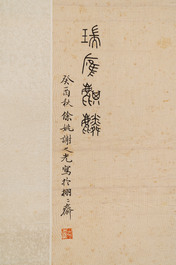 瑞應麒麟
癸酉秋餘姚謝之光寫於栩栩齋